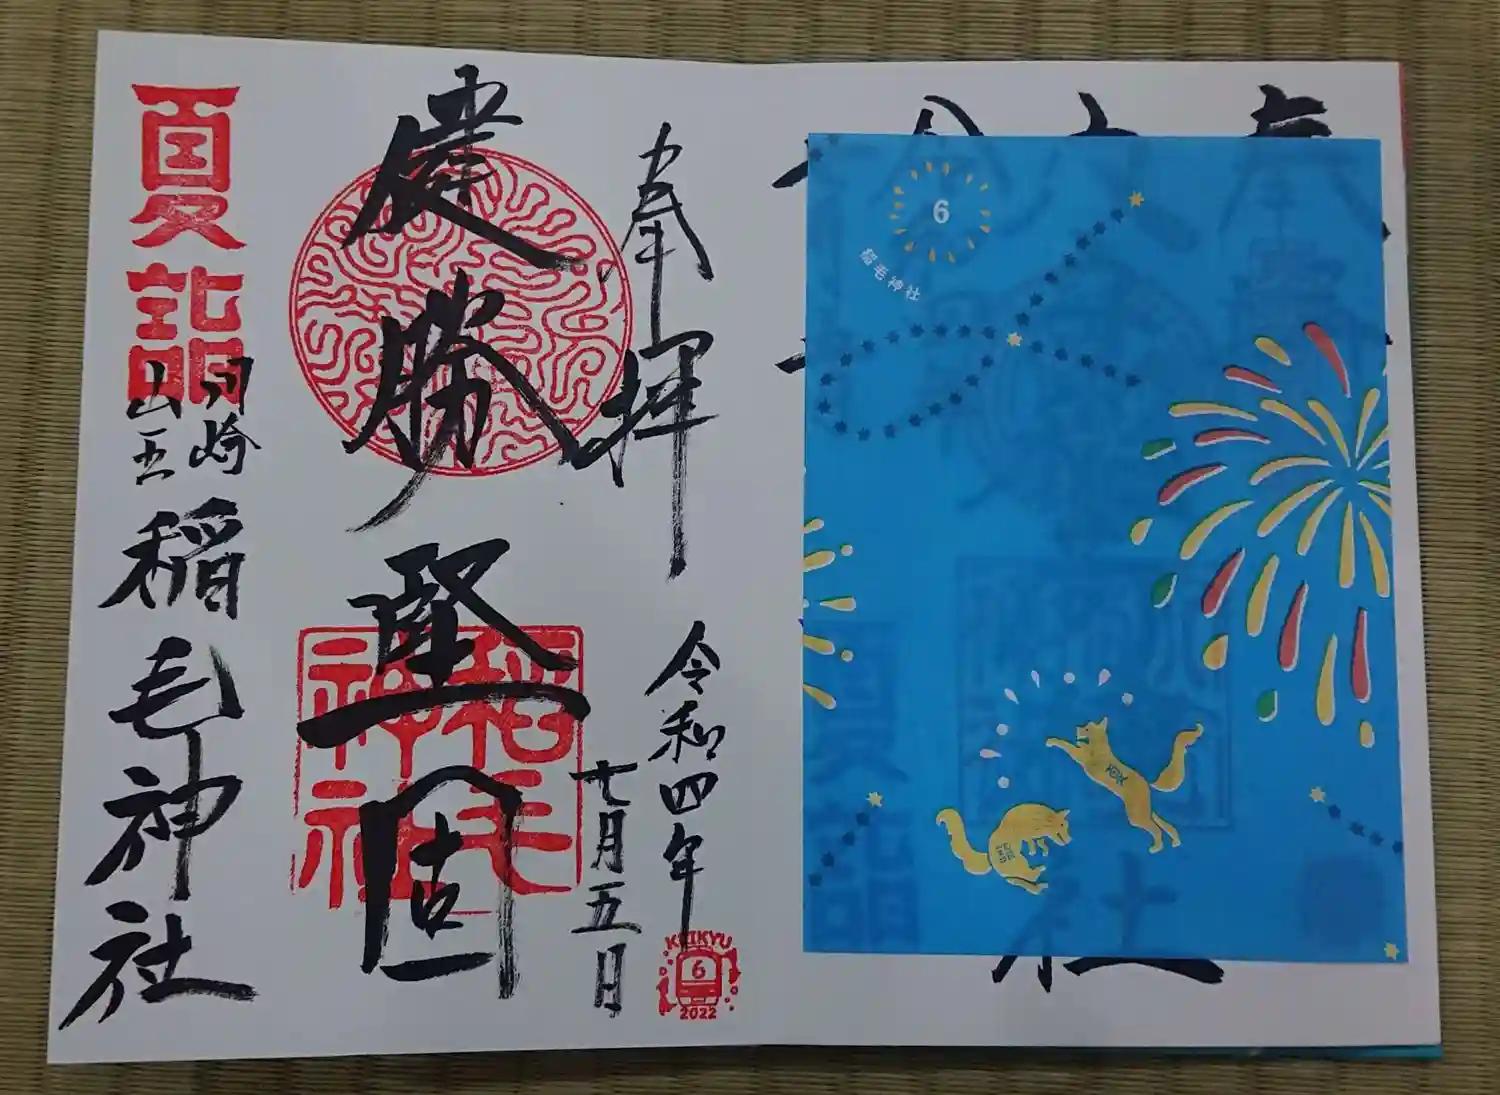 奉拝
令和四年
七月五日
KEIKYU
6
2022
健勝堅固
稲毛神社
夏詣
川崎
山王
稲毛神社
6
稲毛神社
社